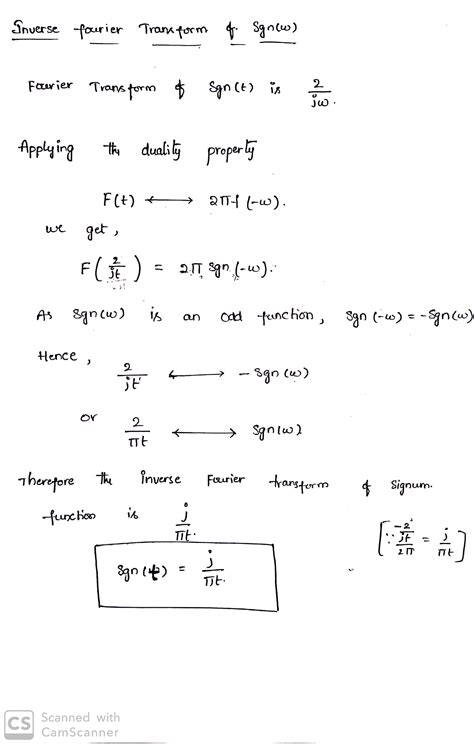 Inverse fourier Transform of Sgn(ω)
Fourier Transform of Sgn(t) is 2/jω.
Applying the duality property
F(t) ⟷ 2π f(-ω).
we get,
F(2/jt) = 2π sgn(-ω).
As Sgn(ω) is an odd function, Sgn(-ω) = -Sgn(ω)
Hence,
2/jt ⟷ - Sgn(ω)
or 2/πt ⟷ Sgn(ω)
Therefore the inverse Fourier transform of Signum.
function is j/πt.
[∵ (-2/jt)/2π = j/πt]
Sgn(t) = j/πt.
CS Scanned with
CamScanner